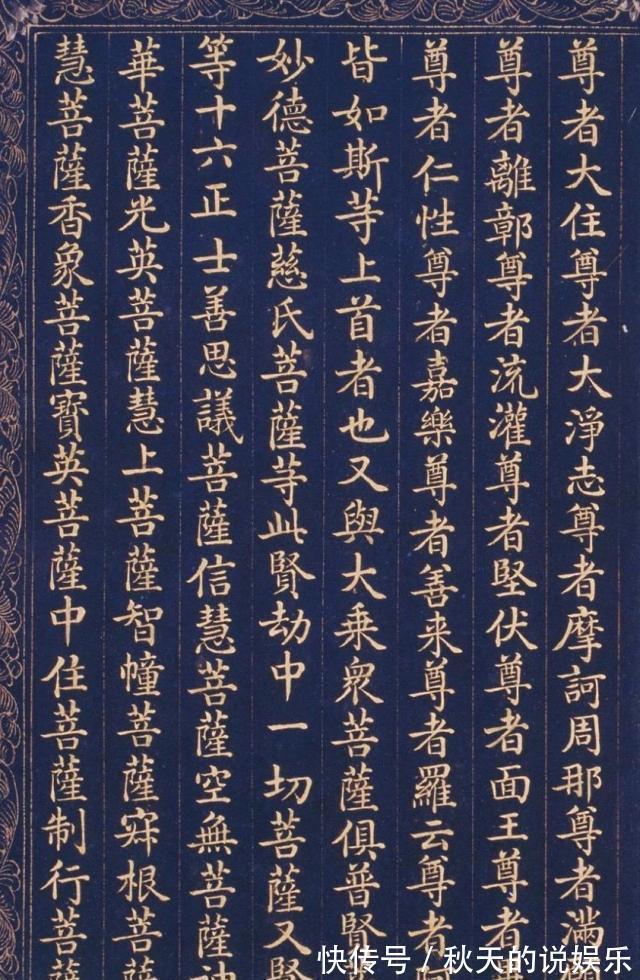 尊者大住尊者大淨志尊者摩訶周那尊者滿
尊者離鄣尊者流灌尊者堅伏尊者面王尊者
尊者仁性尊者嘉樂尊者善来尊者羅云尊者
皆如斯等上首者也又與大乗衆菩薩俱普賢
妙德菩薩慈氏菩薩等此賢劫中一切菩薩又賢
等十六正士善思議菩薩信慧菩薩空無菩薩神
華菩薩光英菩薩慧上菩薩智幢菩薩寂根菩薩
慧菩薩香象菩薩寶英菩薩中住菩薩制行菩薩
快传号/秋天的说娱乐